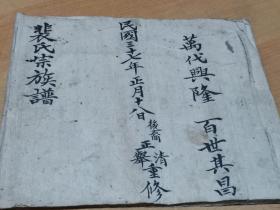 萬代興隆 百世其昌
民國三十七年正月十八日 後裔 正舉 清重修
裴氏宗族譜